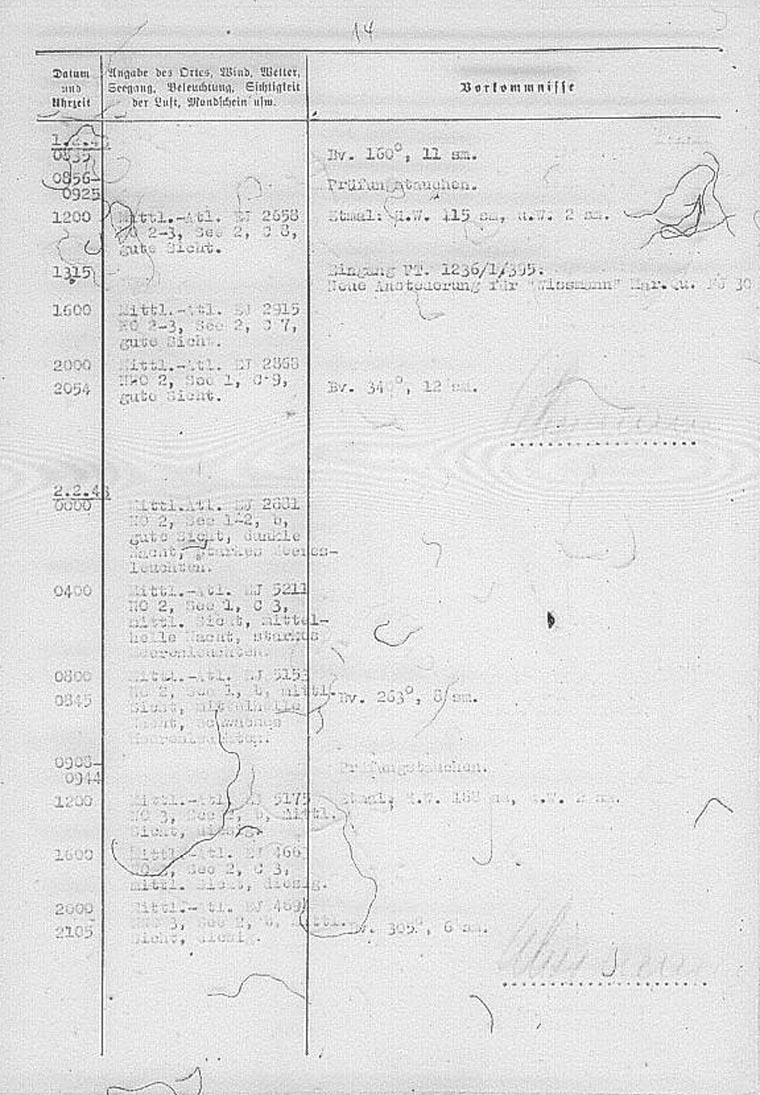 14
Datum
und
Uhrzeit
Angabe des Ortes, Wind, Wetter,
Seegang, Beleuchtung, Sichtigkeit
der Luft, Mondschein usw.
Vorkommnisse
1.2.43
0835 Bv. 160°, 11 sm.
0856-
0925 Prüfungstauchen.
1200 Mittl.-Atl. EJ 2658 Etmal: ü.W. 415 sm, u.W. 2 sm.
NO 2-3, See 2, C 8,
gute Sicht.
1315 Eingang FT. 1236/1/395.
Neue Ansteuerung für "Wissmann" Mar.Qu. 30
1600 Mittl.-Atl. EJ 2915
NO 2-3, See 2, C 7,
gute Sicht.
2000 Mittl.-Atl. EJ 2868
NNO 2, See 1, C 9,
2054 Bv. 340°, 12 sm.
gute Sicht.
2.2.43
0000 Mittl.Atl. EJ 2881
NO 2, See 1-2, b,
gute Sicht, dunkle
Nacht, starkes Meeres-
leuchten.
0400 Mittl.-Atl. EJ 5211
NO 2, See 1, C 3,
mittl. Sicht, mittel-
helle Nacht, starkes
Meeresleuchten.
0800 Mittl.-Atl. EJ 5153
NO 2, See 1, b, mittl.
0845 Bv. 263°, 8 sm.
Sicht, mittelhelle
Nacht, schwaches
Meeresleuchten.
0908-
0944 Prüfungstauchen.
1200 Mittl.-Atl. EJ 5175 Etmal: ü.W. 188 sm, u.W. 2 sm.
NO 3, See 2, b, mittl.
Sicht, diesig.
1600 Mittl.-Atl. EJ 466
See 2, C 3,
mittl. Sicht, diesig.
2000 Mittl.-Atl. EJ 469
3, See 2, b, mittl.
2105 Bv. 305°, 6 sm.
Sicht, diesig.